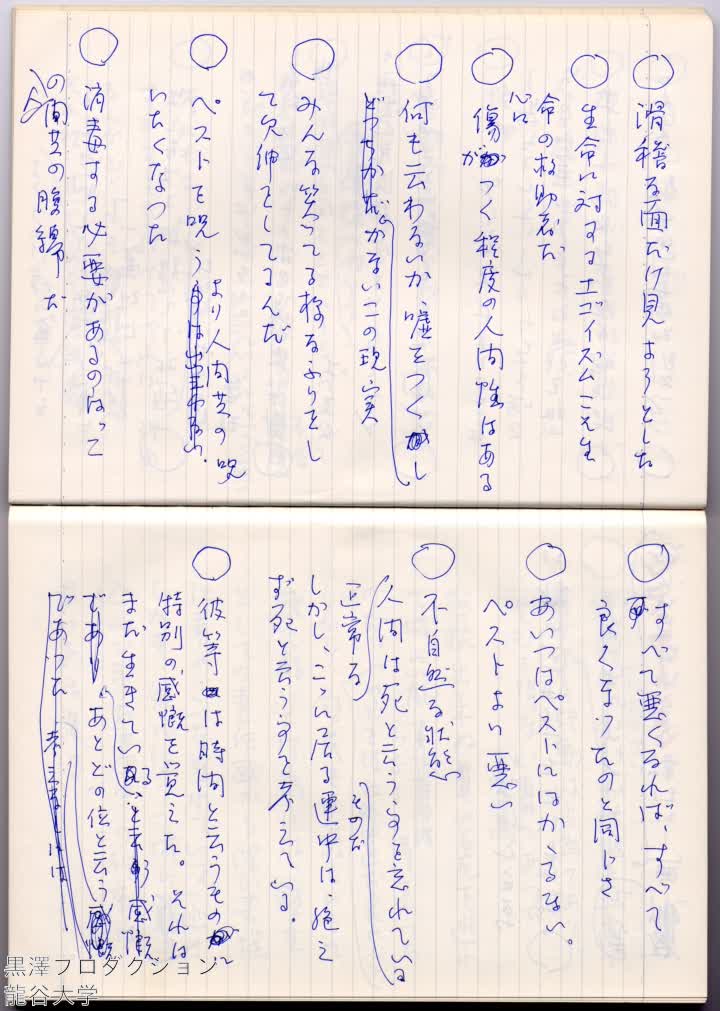 ○滑稽な面だけ見ようとした
○生命に対するエゴイズムこそ生
命の救助だ
心に
○傷がつく程度の人間性はある
○何も云わないか、嘘をつくし
かないこの現実
○みんな笑ってる様なふりをし
て欠伸をしてるんだ
○ペストを呪うより人間共の呪
いたくなった
○消毒する必要があるのはって
の間共の腹綿だ
○すべて悪くなれば、すべて
良くなったのと同じさ
○あいつはペストにはかゝらない。
ペストよい悪い
○不自然な状態
人間は死と云う事を忘れている
正常な
そのだ
しかし、こゝに居る連中は、絶え
ず死と云う事を考えている。
○彼等は時間と云うものに
特別の感慨を覚えた。それは
まだ生きている、と云う感慨
であり、あとどの位と云う感慨
であった
黒澤プロダクション
龍谷大学